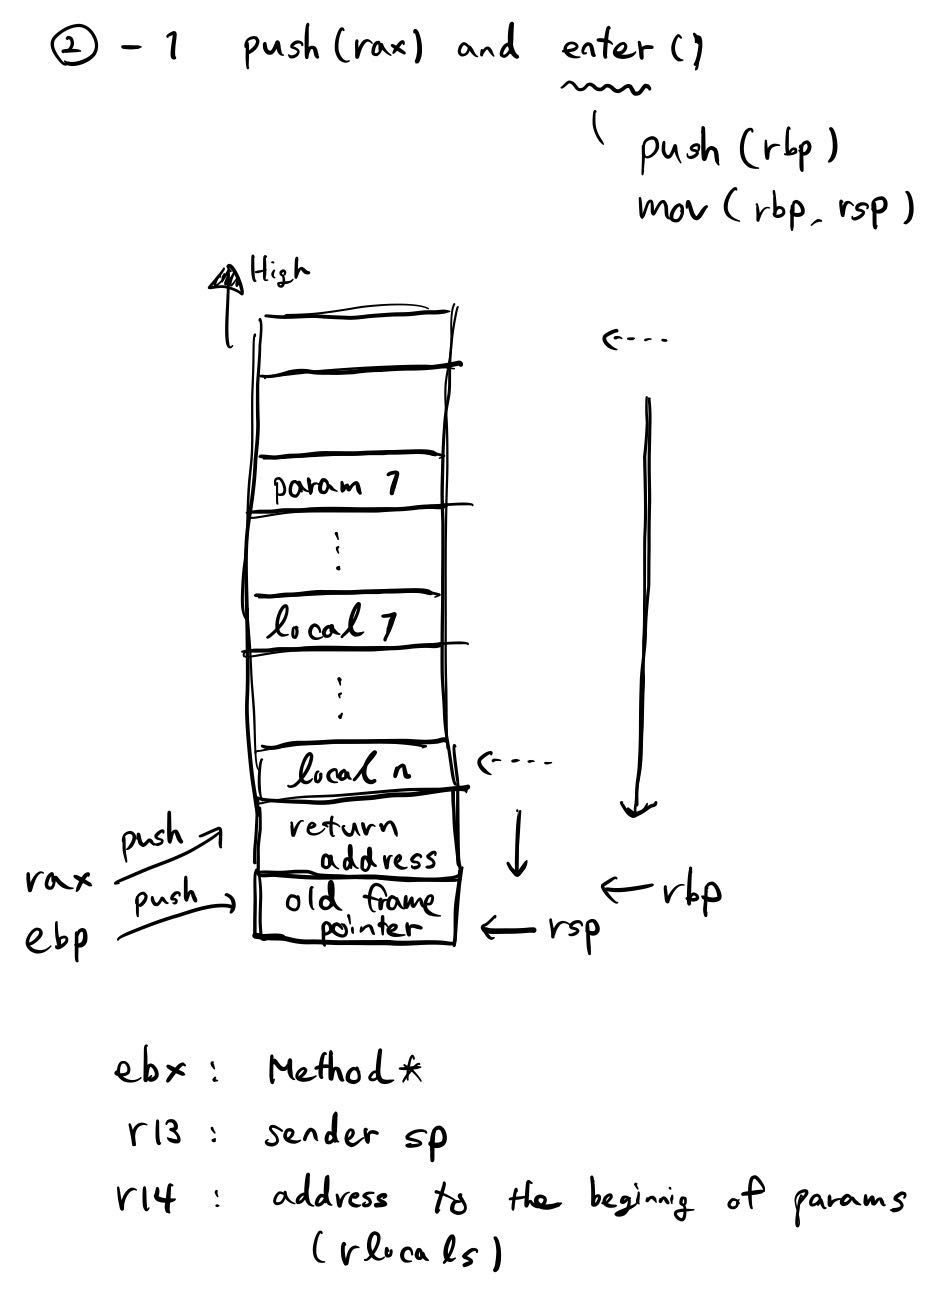 ② - 1 push (rax) and enter ()
push (rbp)
mov (rbp, rsp)
High
param 1
⋮
local 1
⋮
local n
return
address
push
rax
push
ebp
old frame
pointer
rbp
rsp
ebx : Method*
r13 : sender sp
r14 : address to the beginnig of params
(rlocals)